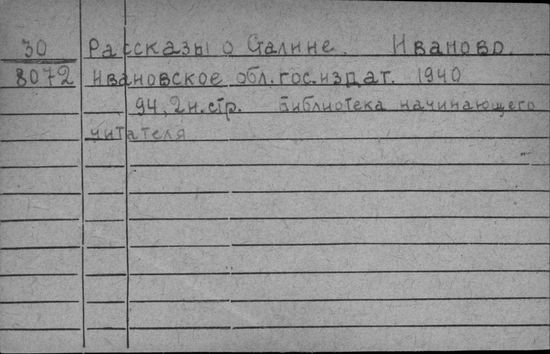 30 Рассказы о Сталине. Иваново.
8072 Ивановское обл.гос.издат. 1940
94, 2 н.стр. Библиотека начинающего
читателя